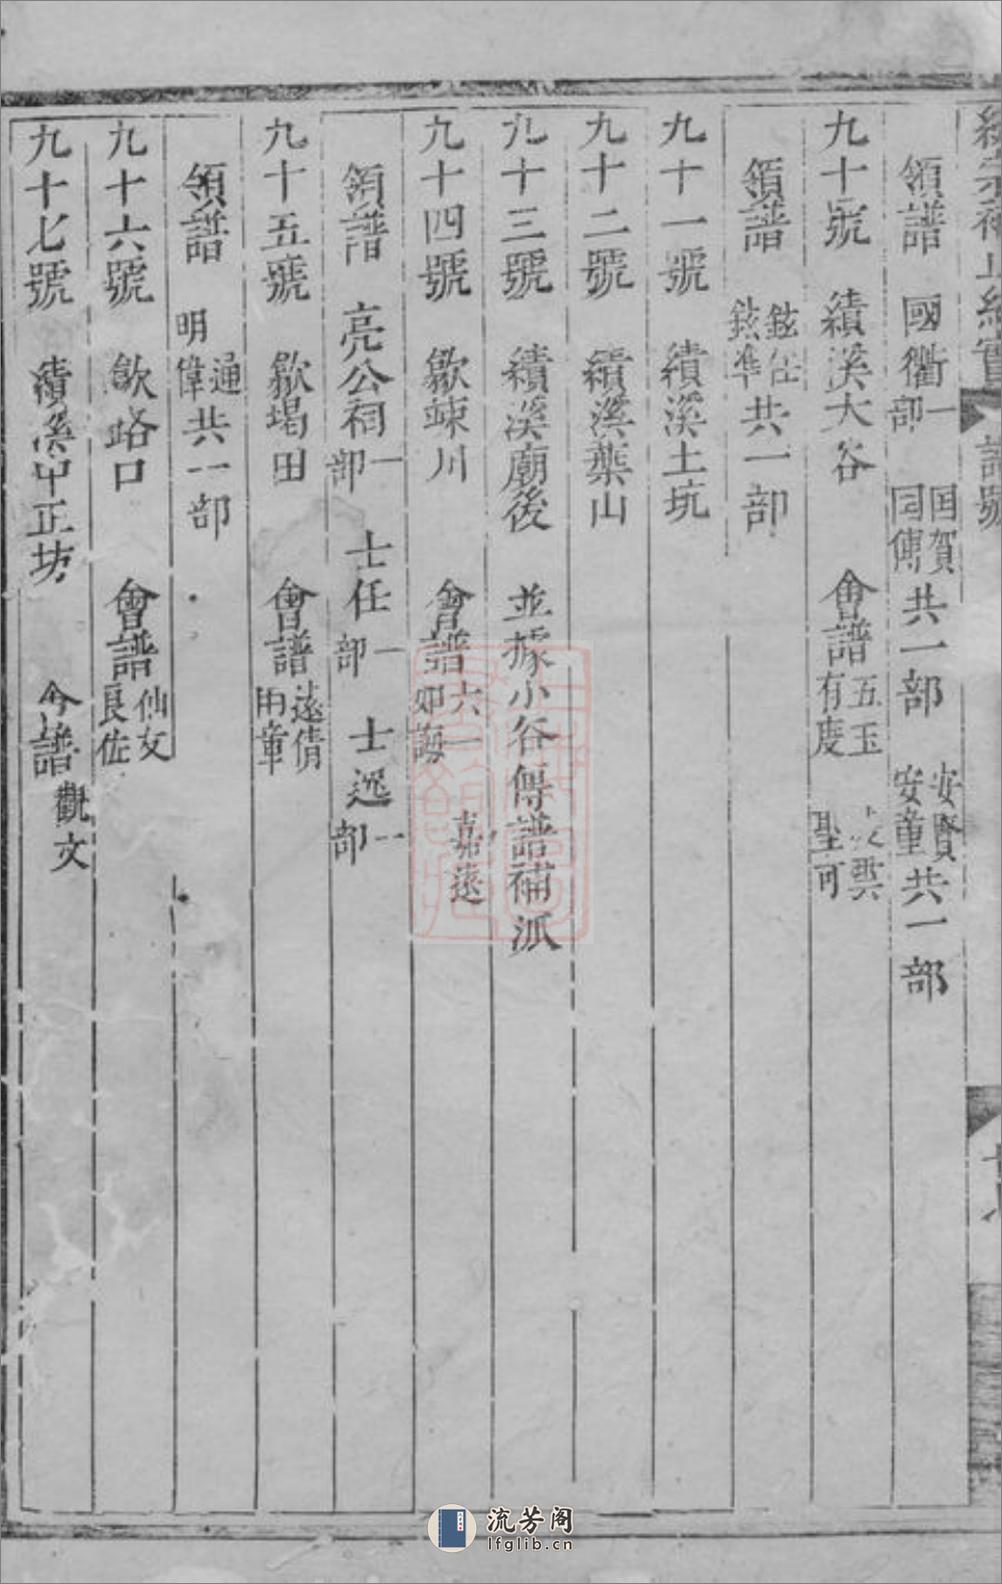 譜號
領譜 國衢一部 国賀国傳共一部 安賢安童共一部
九十號 績溪大谷 會譜五玉有度 聖可
領譜 鉉任鉉準共一部
九十一號 績溪土坑
九十二號 績溪葉山
九十三號 績溪廟後 並據小谷傳譜補派
九十四號 歙竦川 會譜六一 嘉遠
領譜 亮公祠一部 士任一部 士选一部
九十五號 歙堨田 會譜遠倩用章
領譜 通明偉共一部
九十六號 歙路口 會譜仙友良佐
九十七號 績溪中正坊 今譜觀文
流芳阁
lfglib.cn